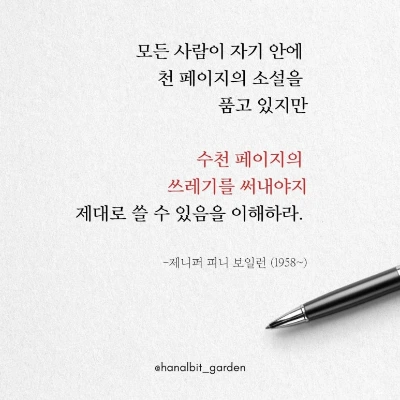 모든 사람이 자기 안에
천 페이지의 소설을
품고 있지만
수천 페이지의
쓰레기를 써내야지
제대로 쓸 수 있음을 이해하라.
-제니퍼 피니 보일런 (1958~)
@hanalbit_garden